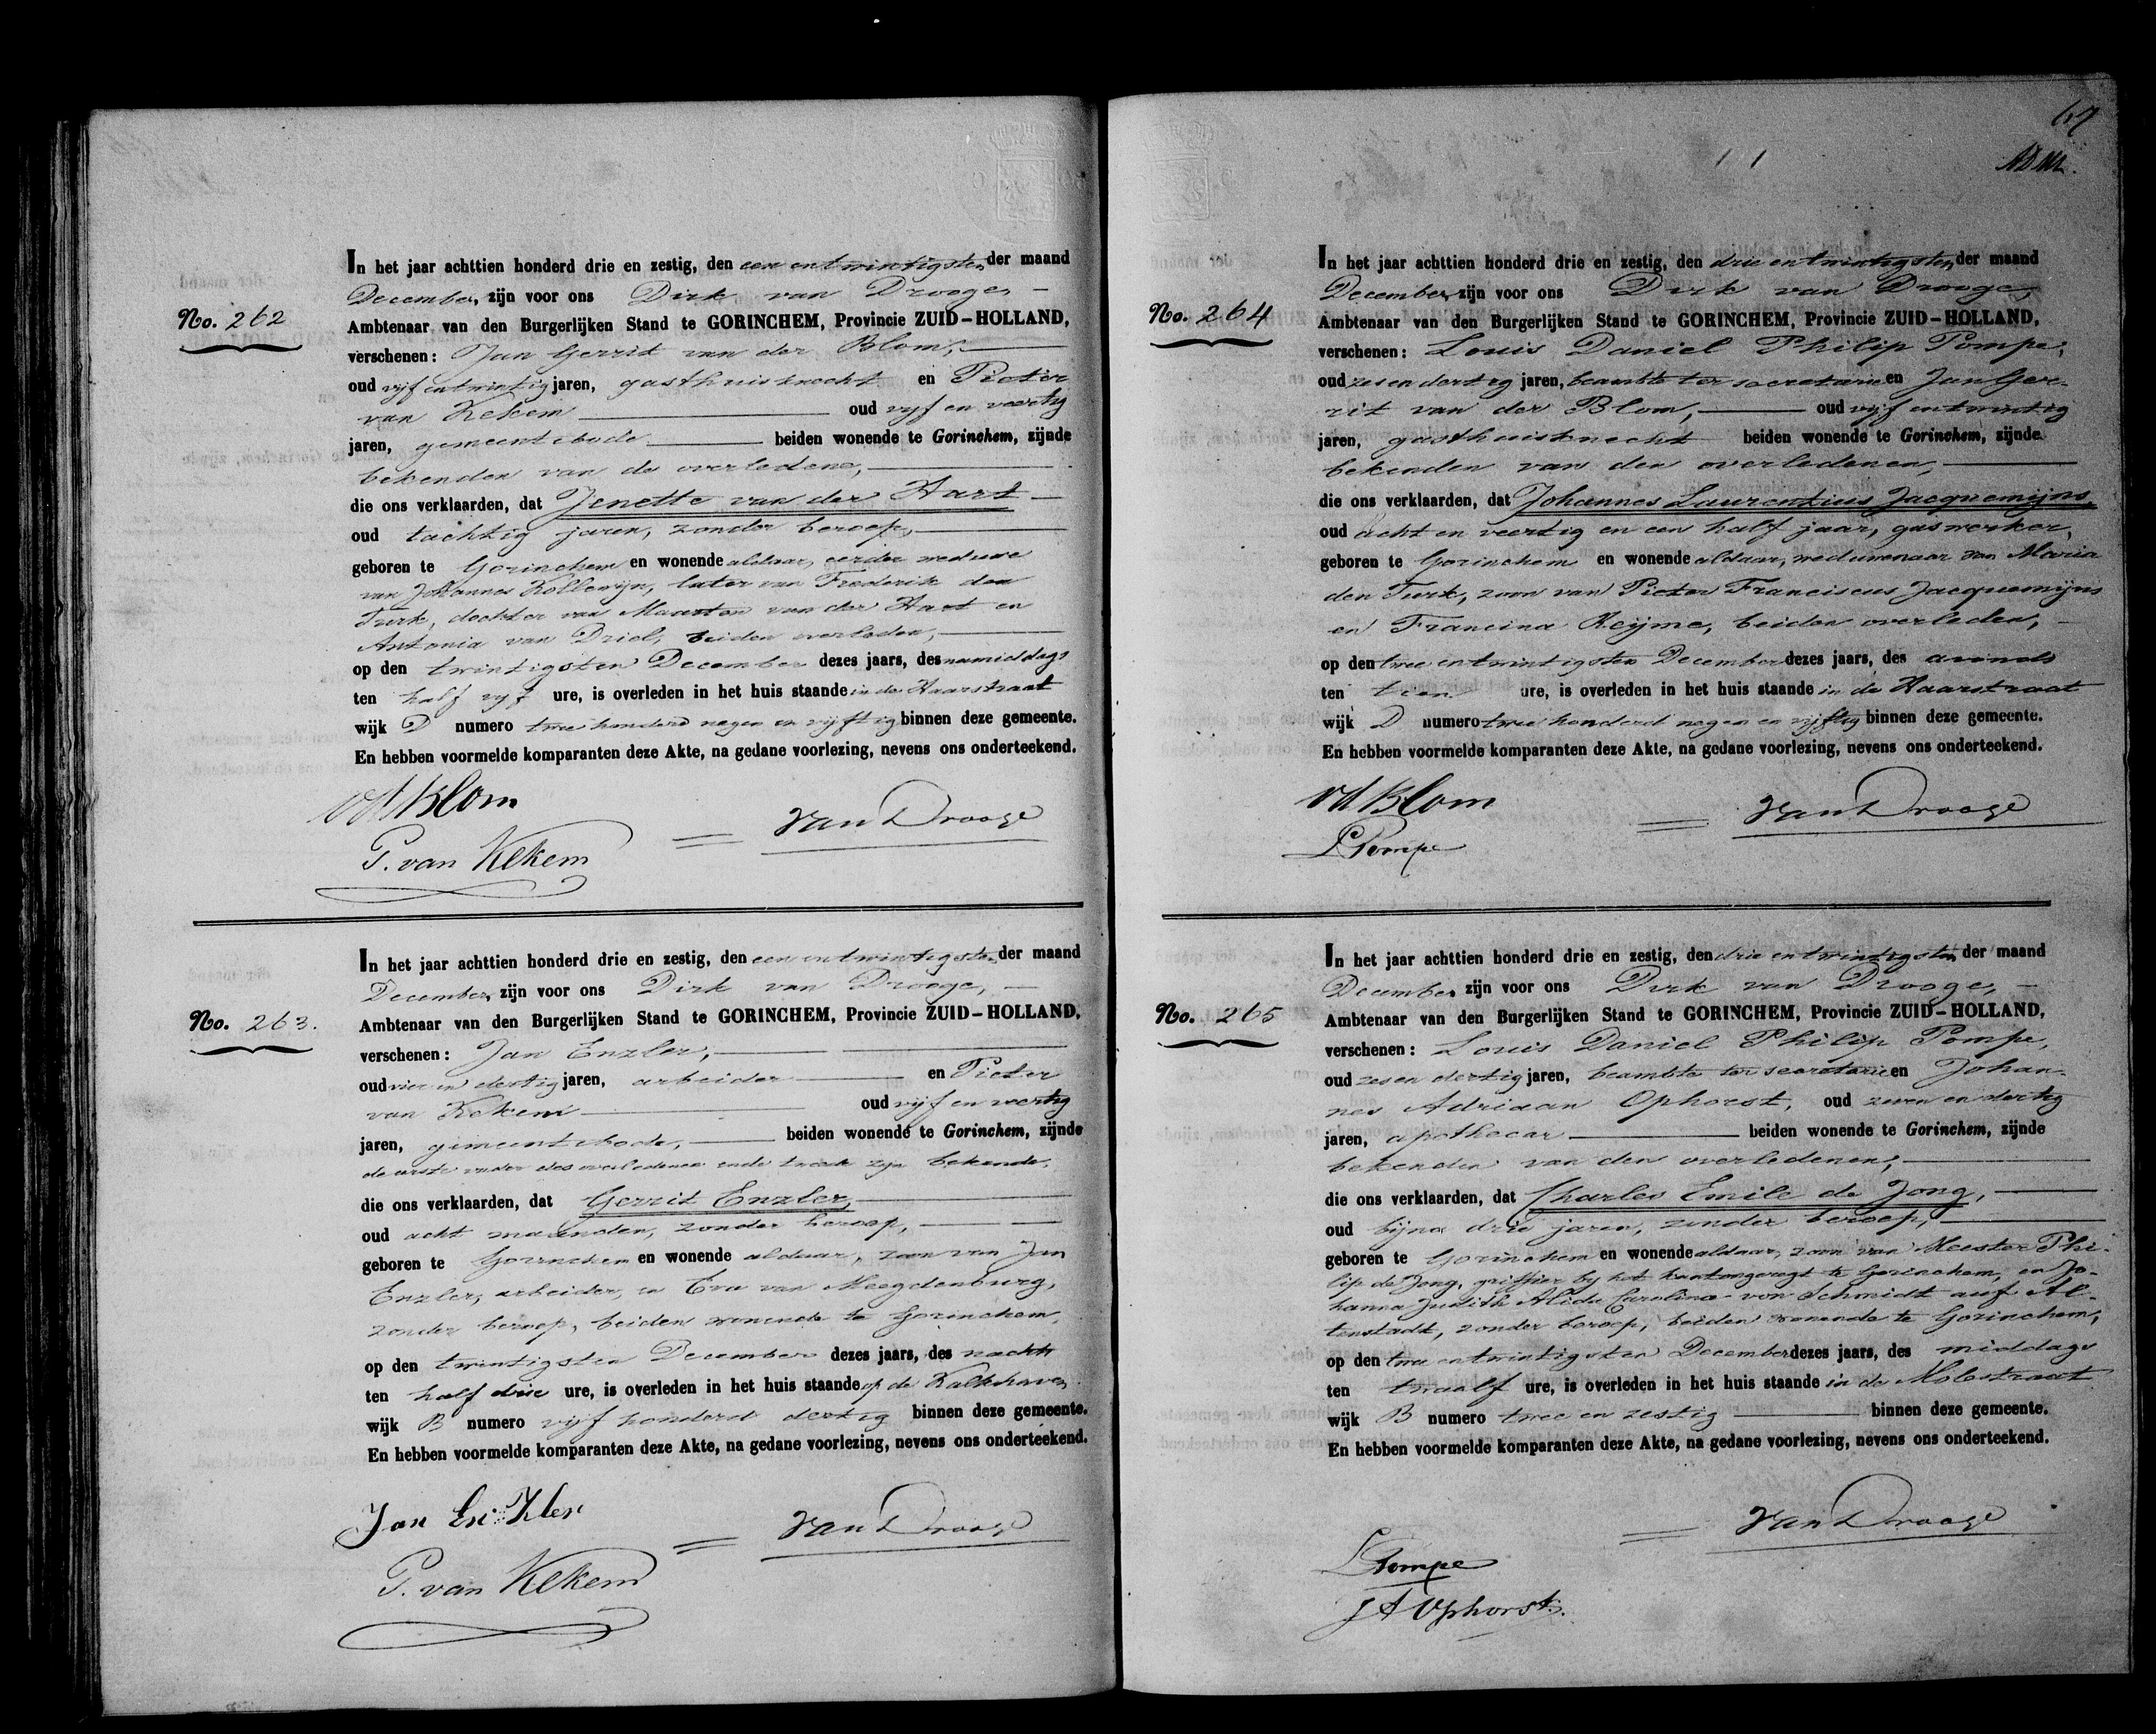 No. 262
In het jaar achttien honderd drie en zestig, den een en twintigsten der maand
December, zijn voor ons Dirk van Drooge,
Ambtenaar van den Burgerlijken Stand te GORINCHEM, Provincie ZUID-HOLLAND,
verschenen: Jan Gerrit van der Blom,
oud vijf en twintig jaren, gasthuisknecht en Pieter
van Kekem oud vijf en veertig
jaren, gemeentebode beiden wonende te Gorinchem, zijnde
bekenden van de overledene,
die ons verklaarden, dat Jenette van der Hart
oud tachtig jaren, zonder beroep,
geboren te Gorinchem en wonende aldaar, eerder weduwe
van Johannes Kollewijn, later van Frederik den
Turk, dochter van Maarten van der Hart en
Antonia van Driel, beiden overleden,
op den twintigsten December dezes jaars, des namiddags
ten half vijf ure, is overleden in het huis staande in de Haarstraat
wijk D numero twee honderd negen en vijftig binnen deze gemeente.
En hebben voormelde komparanten deze Akte, na gedane voorlezing, nevens ons onderteekend.
vd Blom
P. van Kekem
van Drooge
No. 263.
In het jaar achttien honderd drie en zestig, den een en twintigsten der maand
December, zijn voor ons Dirk van Drooge,
Ambtenaar van den Burgerlijken Stand te GORINCHEM, Provincie ZUID-HOLLAND,
verschenen: Jan Enzler,
oud vier en dertig jaren, arbeider en Pieter
van Kekem oud vijf en veertig
jaren, gemeentebode, beiden wonende te Gorinchem, zijnde
de eerste vader des overledenen en de tweede zijn bekende,
die ons verklaarden, dat Gerrit Enzler,
oud acht maanden, zonder beroep,
geboren te Gorinchem en wonende aldaar, zoon van Jan
Enzler, arbeider, en Eva van Meegdenburg,
zonder beroep, beiden wonende te Gorinchem,
op den twintigsten December dezes jaars, des nachts
ten half drie ure, is overleden in het huis staande op de Kalkhaven
wijk B numero vijf honderd dertig binnen deze gemeente.
En hebben voormelde komparanten deze Akte, na gedane voorlezing, nevens ons onderteekend.
Jan Enzler
P. van Kekem
van Drooge
67
No. 264
In het jaar achttien honderd drie en zestig, den drie en twintigsten der maand
December, zijn voor ons Dirk van Drooge,
Ambtenaar van den Burgerlijken Stand te GORINCHEM, Provincie ZUID-HOLLAND,
verschenen: Louis Daniel Philip Pompe,
oud zes en dertig jaren, beambte ter secretarie en Jan Ger-
rit van der Blom, oud vijf en twintig
jaren, gasthuisknecht beiden wonende te Gorinchem, zijnde
bekenden van den overledenen,
die ons verklaarden, dat Johannes Laurentius Jacquemijns,
oud acht en veertig en een half jaar, gaswerker,
geboren te Gorinchem en wonende aldaar, weduwenaar van Maria
den Turk, zoon van Pieter Franciscus Jacquemijns
en Francina Reijme, beiden overleden,
op den twee en twintigsten December dezes jaars, des avonds
ten tien ure, is overleden in het huis staande in de Haarstraat
wijk D numero twee honderd negen en vijftig binnen deze gemeente.
En hebben voormelde komparanten deze Akte, na gedane voorlezing, nevens ons onderteekend.
vd Blom
L Pompe
van Drooge
No. 265
In het jaar achttien honderd drie en zestig, den drie en twintigsten der maand
December zijn voor ons Dirk van Drooge,
Ambtenaar van den Burgerlijken Stand te GORINCHEM, Provincie ZUID-HOLLAND,
verschenen: Louis Daniel Philip Pompe,
oud zes en dertig jaren, beambte ter secretarie en Johan-
nes Adriaan Ophorst, oud zeven en dertig
jaren, apothecar beiden wonende te Gorinchem, zijnde
bekenden van den overledenen,
die ons verklaarden, dat Charles Emile de Jong,
oud bijna drie jaren, zonder beroep,
geboren te Gorinchem en wonende aldaar, zoon van Meester Phi-
lip de Jong, griffier bij het kantongeregt te Gorinchem, en Jo-
hanna Judith Alida Carolina von Schmidt auf Al-
tenstadt, zonder beroep, beiden wonende te Gorinchem,
op den twee en twintigsten December dezes jaars, des middags
ten twaalf ure, is overleden in het huis staande in de Molestraat
wijk B numero twee en zestig binnen deze gemeente.
En hebben voormelde komparanten deze Akte, na gedane voorlezing, nevens ons onderteekend.
L Pompe
J A Ophorst.
van Drooge